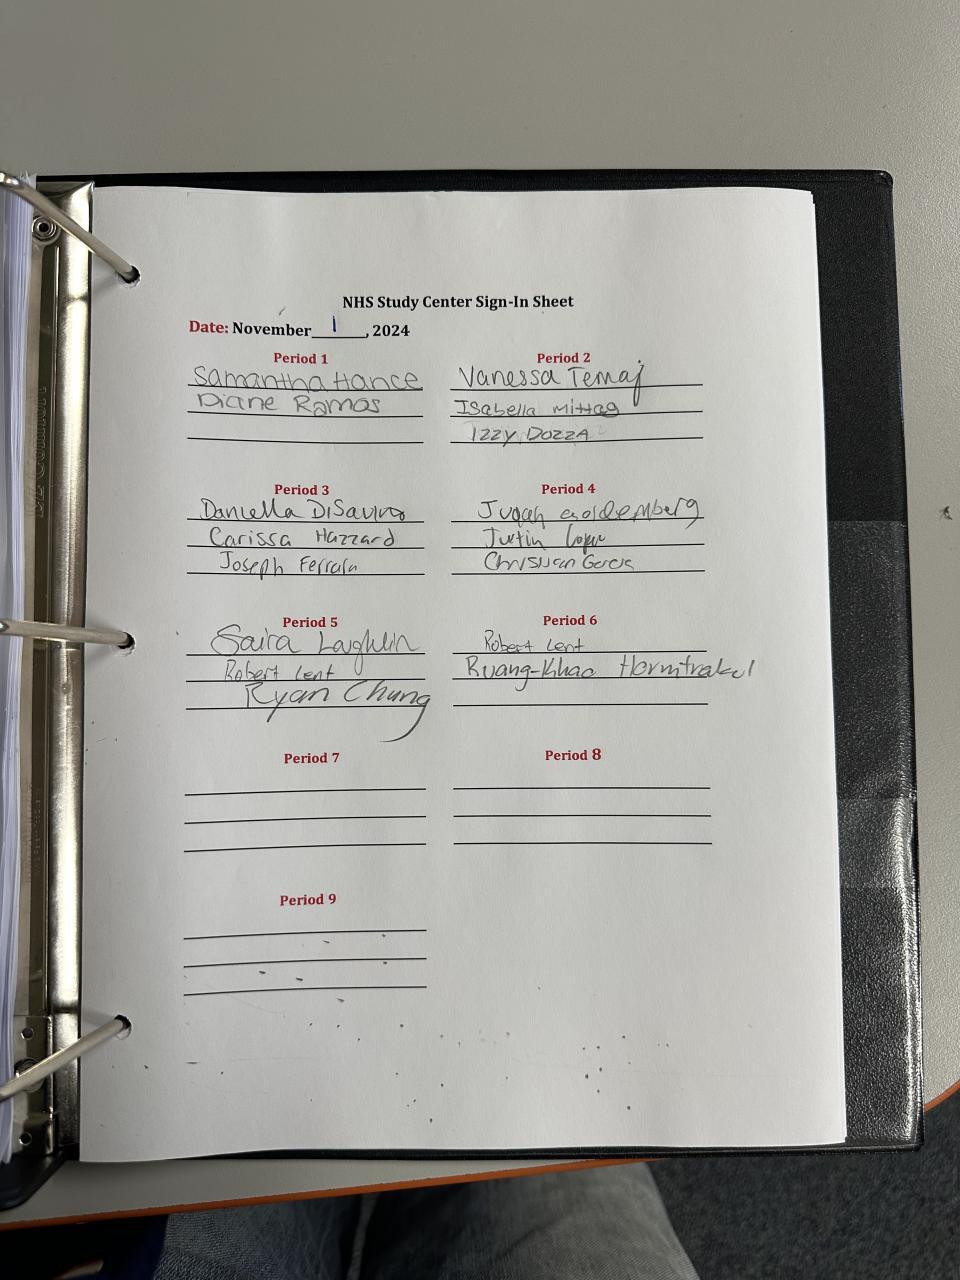 NHS Study Center Sign-In Sheet
Date: November 1, 2024
Period 1
Samantha Hance
Diane Ramos
Period 2
Vanessa Temaj
Isabella Mittag
Izzy Dozza
Period 3
Daniella DiSavino
Carissa Hazzard
Joseph Ferrara
Period 4
Goldemberg
Justin
Christian Garcia
Period 5
Saira Laughlin
Robert Lent
Ryan Chung
Period 6
Robert Lent
Ruang-Khao Hormtrakul
Period 7
Period 8
Period 9